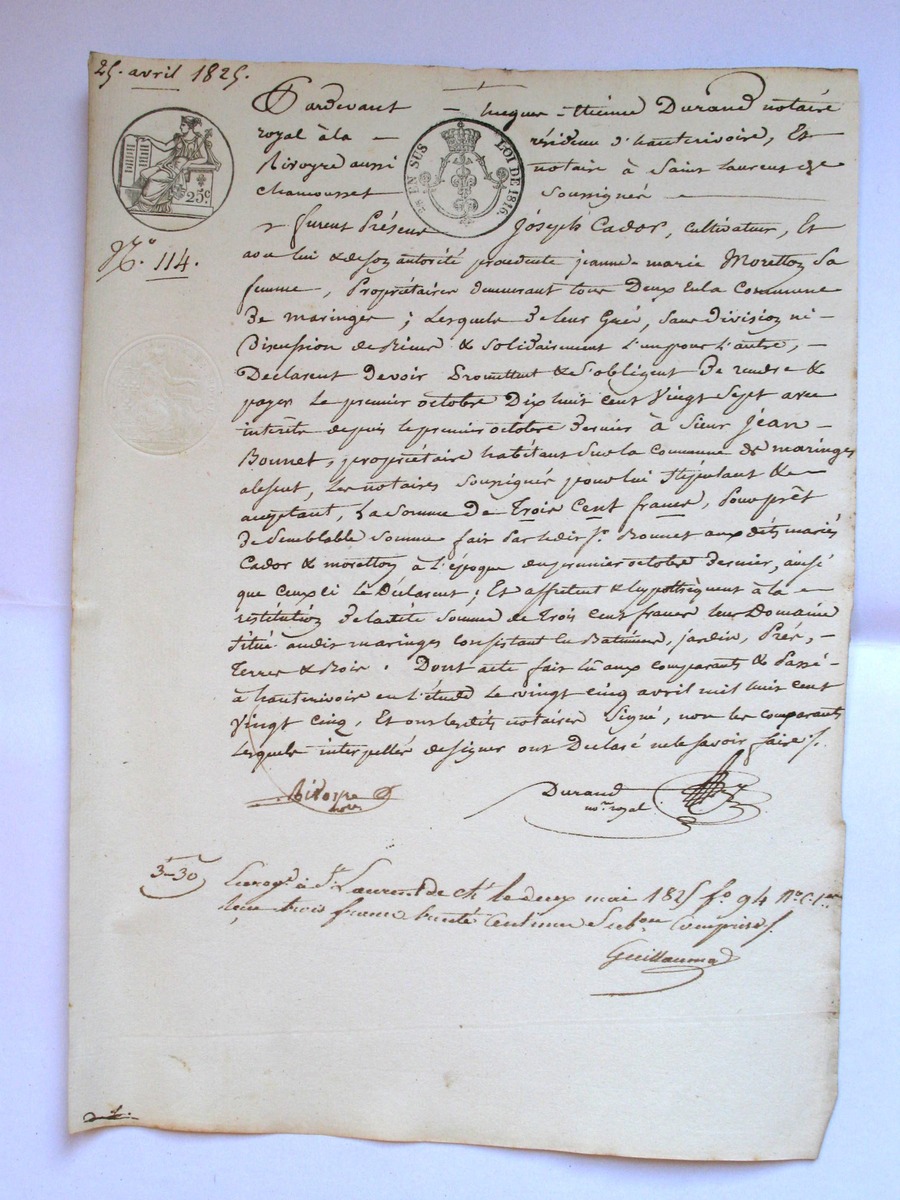 25. avril 1825.
Pardevant Jacques-Etienne Durand notaire
royal à la résidence d'hauterivoire, Et
Rivoyre aussi notaire à Saint Laurent de
Chamousset Soussignés
25c
28 EN SUS LOI DE 1816
N.º 114.
furent Présens Joseph Cador, cultivateur, Et
avec lui & de son autorité procédente jeanne-marie Moretton Sa
femme, Propriétaires demeurant tous Deux en la Commune
De maringes ; Lesquels de leur Gré, Sans division ni
Discussion de Biens & Solidairement l'un pour l'autre,
Declarent Devoir Promettent & S'obligent De rendre &
payer Le premier octobre Dix huit cent Vingt Sept avec
intérêts depuis le premier octobre Dernier à Sieur Jéan
Bonnet, propriétaire habitant Sur la Commune de maringes
absent, Les notaires Soussignés pour lui Stipulant &
acceptant, La Somme De Trois Cent francs, Pour prêt
De Semblable Somme fait Par ledit Sr. Bonnet aux dits mariés
Cador & moretton à l'époque du premier octobre Dernier, ainsi
que Ceux ci le Déclarent ; Et affectent & hypothèquent à la
restitution De ladite Somme de Trois Cent francs leur Domaine
Situé audit maringes consistant En Batimens, jardin, Prés,
Terres & Bois. Dont acte fait lû aux comparants & Passé
à hauterivoire en l'étude Le vingt cinq avril mil huit cent
Vingt cinq, Et ont lesdits notaires Signé, non les comparants
Lesquels interpellés de signer ont Déclaré ne le Savoir faire/.
Rivoyre
nore
Durand
nore. royal
3-30
Enregé. à St. Laurent de Cht. le deux mai 1825 fo. 94 Ro. C. 1ere
reçu trois francs trente Centimes Subon. Comprise/.
Guillaume